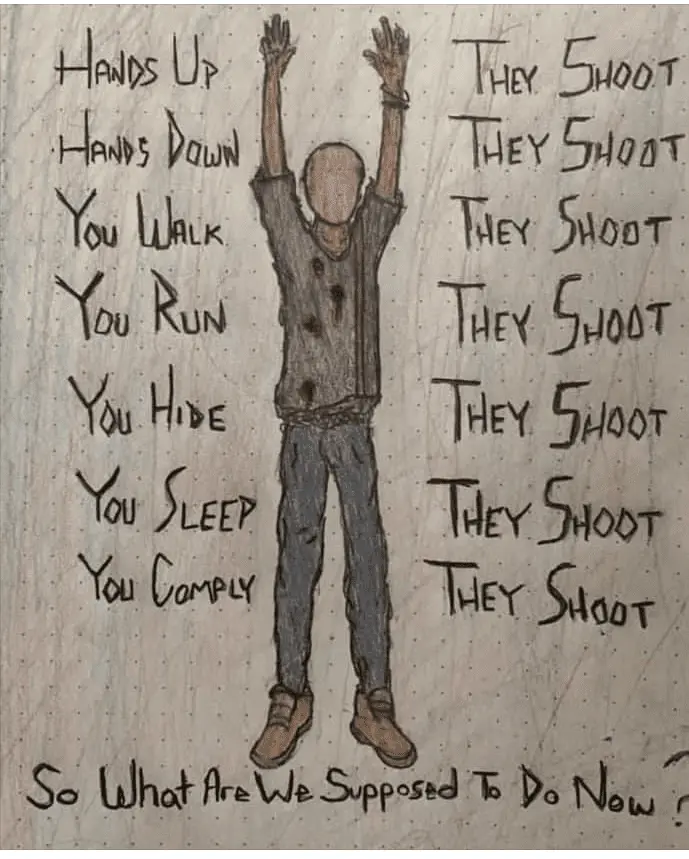 Hands Up They Shoot
Hands Down They Shoot
You Walk They Shoot
You Run They Shoot
You Hide They Shoot
You Sleep They Shoot
You Comply They Shoot
So What Are We Supposed To Do Now?